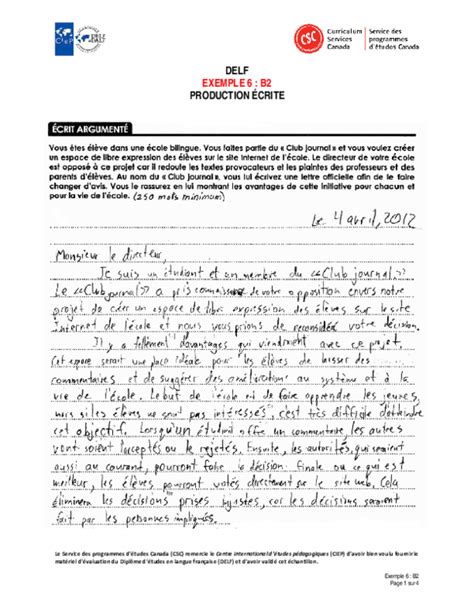 CIEP
DELF
DALF
CSC
Curriculum Services Canada
Service des programmes d'études Canada
DELF
EXEMPLE 6 : B2
PRODUCTION ÉCRITE
ÉCRIT ARGUMENTÉ
Vous êtes élève dans une école bilingue. Vous faites partie du « Club journal » et vous voulez créer
un espace de libre expression des élèves sur le site Internet de l'école. Le directeur de votre école
est opposé à ce projet car il redoute les textes provocateurs et les plaintes des professeurs et des
parents d'élèves. Au nom du « Club journal », vous lui écrivez une lettre officielle afin de le faire
changer d'avis. Vous le rassurez en lui montrant les avantages de cette initiative pour chacun et
pour la vie de l'école. (250 mots minimum)
Le 4 avril, 2012
Monsieur le directeur,
Je suis un étudiant et un membre du «Club journal.»
Le «Club journal» a pris connaissance de votre opposition envers notre
projet de créer un espace de libre expression des élèves sur le site
Internet de l'école et nous vous prions de reconsidér votre décision.
Il y a tellement d'avantages qui viendraient avec ce projet.
Cet espace serait une place idéale pour les élèves de laisser des
commentaires et de suggérer des améliorations au système et à la
vie de l'école. Le but de l'école est de faire apprendre les jeunes,
mais si les élèves ne sont pas intéressés, c'est très difficile d'atteindre
cet objectif. Lorsqu'un étudiant offre un commentaire, les autres
vont soient l'acceptés ou le rejetés. Ensuite, les autorités, qui seraient
aussi au courant, pourront faire la décision finale ou ce qui est
meilleur, les élèves pourront votés directement sur le site web. Cela
éliminera les décisions prises injustes, car les décisions seraient
fait par les personnes impliquées.
Le Service des programmes d'études Canada (CSC) remercie le Centre international d'études pédagogiques (CIEP) d'avoir bien voulu fournir le
matériel d'évaluation du Diplôme d'études en langue française (DELF) et d'avoir validé cet échantillon.
Exemple 6 : B2
Page 1 sur 4